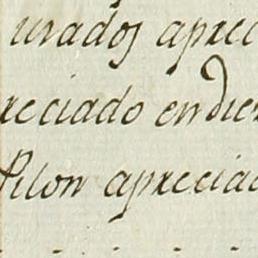 urados aprec
reciado en die
Pilon apreciad